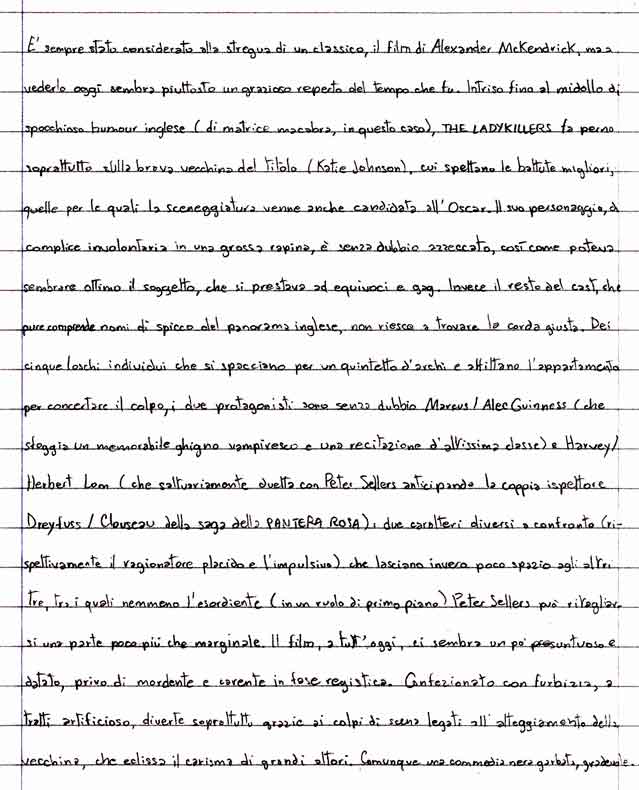 E' sempre stato considerato alla stregua di un classico, il film di Alexander McKendrick, ma a
vederlo oggi sembra piuttosto un grazioso reperto del tempo che fu. Intriso fino al midollo di
spocchioso humour inglese (di matrice macabra, in questo caso), THE LADYKILLERS fa perno
soprattutto sulla brava vecchina del titolo (Katie Johnson), cui spettano le battute migliori,
quelle per le quali la sceneggiatura venne anche candidata all'Oscar. Il suo personaggio, di
complice involontaria in una grossa rapina, è senza dubbio azzeccato, così come poteva
sembrare ottimo il soggetto, che si prestava ad equivoci e gag. Invece il resto del cast, che
pure comprende nomi di spicco del panorama inglese, non riesce a trovare la corda giusta. Dei
cinque loschi individui che si spacciano per un quintetto d'archi e affittano l'appartamento
per concertare il colpo, i due protagonisti sono senza dubbio Marcus/Alec Guinness (che
sfoggia un memorabile ghigno vampiresco e una recitazione d'altissima classe) e Harvey/
Herbert Lom (che saltuariamente duetta con Peter Sellers anticipando la coppia ispettore
Dreyfuss/Clouseau della saga della PANTERA ROSA): due caratteri diversi a confronto (ri-
spettivamente il ragionatore placido e l'impulsivo) che lasciano invero poco spazio agli altri
tre, tra i quali nemmeno l'esordiente (in un ruolo di primo piano) Peter Sellers può ritagliar-
si una parte poco più che marginale. Il film, a tutt'oggi, ci sembra un po' presuntuoso e
datato, privo di mordente e carente in fase registica. Confezionato con furbizia, a
tratti artificioso, diverte soprattutto grazie ai colpi di scena legati all'atteggiamento della
vecchina, che eclissa il carisma di grandi attori. Comunque una commedia nera garbata, gradevole.